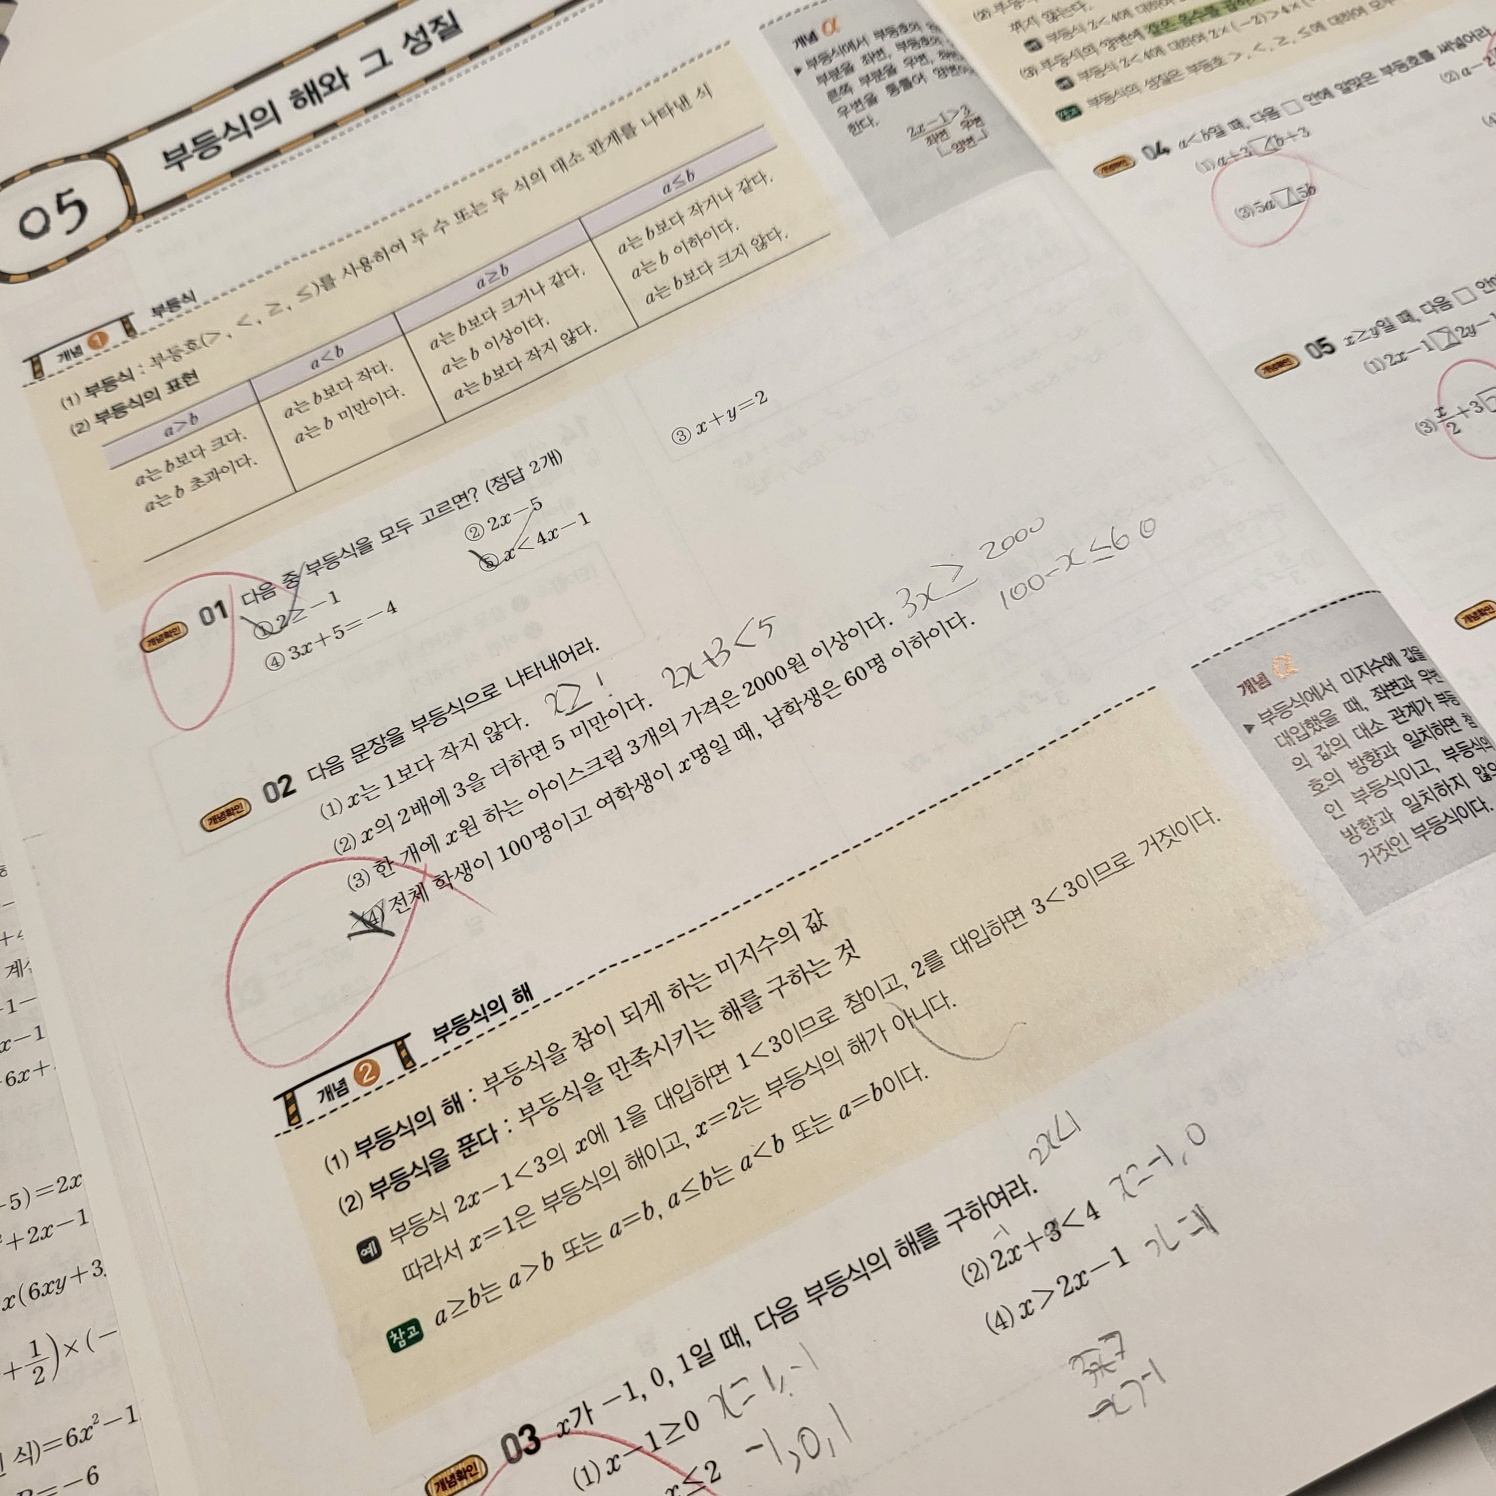 05 부등식의 해와 그 성질
개념 1 부등식
(1) 부등식 : 부등호(>, <, ≥, ≤)를 사용하여 두 수 또는 두 식의 대소 관계를 나타낸 식
(2) 부등식의 표현
a>b
a<b
a≥b
a≤b
a는 b보다 크다.
a는 b 초과이다.
a는 b보다 작다.
a는 b 미만이다.
a는 b보다 크거나 같다.
a는 b 이상이다.
a는 b보다 작지 않다.
a는 b보다 작거나 같다.
a는 b 이하이다.
a는 b보다 크지 않다.
개념 α
▶ 부등식에서 부등호의
부분을 좌변, 부등호의
른쪽 부분을 우변,
우변을 통틀어
한다.
2x-1>3
좌변 우변
양변
개념확인 01 다음 중 부등식을 모두 고르면? (정답 2개)
① 2≥-1
② 2x-5
③ x+y=2
④ 3x+5=-4
⑤ x<4x-1
개념확인 02 다음 문장을 부등식으로 나타내어라.
(1) x는 1보다 작지 않다. x≥1
(2) x의 2배에 3을 더하면 5 미만이다. 2x+3<5
(3) 한 개에 x원 하는 아이스크림 3개의 가격은 2000원 이상이다. 3x≥2000
(4) 전체 학생이 100명이고 여학생이 x명일 때, 남학생은 60명 이하이다. 100-x≤60
개념 2 부등식의 해
(1) 부등식의 해 : 부등식을 참이 되게 하는 미지수의 값
(2) 부등식을 푼다 : 부등식을 만족시키는 해를 구하는 것
예 부등식 2x-1<3의 x에 1을 대입하면 1<3이므로 참이고, 2를 대입하면 3<3이므로 거짓이다.
따라서 x=1은 부등식의 해이고, x=2는 부등식의 해가 아니다.
참고 a≥b는 a>b 또는 a=b, a≤b는 a<b 또는 a=b이다.
개념 α
▶ 부등식에서 미지수에 값을
대입했을 때, 좌변과 우변
의 값의 대소 관계가 부등
호의 방향과 일치하면 참
인 부등식이고, 부등식의
방향과 일치하지 않으
거짓인 부등식이다.
개념확인 03 x가 -1, 0, 1일 때, 다음 부등식의 해를 구하여라. 2x<1
(1) x-1≥0 x=1,-1
(2) 2x+3<4 x=-1,0
x≤2 -1,0,1
(4) x>2x-1
-x>-1
꿔지 않는다.
부등식 2<4에 대하여
(3) 부등식의 양변에 같은 음수를
예 부등식 2<4에 대하여 2×(-2)>4×(
참고 부등식의 성질은 부등호 >, <, ≥, ≤에 대하여 모두
개념확인 04 a<b일 때, 다음 □ 안에 알맞은 부등호를 써넣어라.
(1) a+3 < b+3
(2) a-2
(3) 5a 5b
개념확인 05 x≥y일 때, 다음 □ 안에
(1) 2x-1 2y-1
(3) x/2+3
개념확인
계
-1-
x-1
6x+
-5)=2x
+2x-1
x(6xy+3
+1/2)×(-
식)=6x²-1
=-6